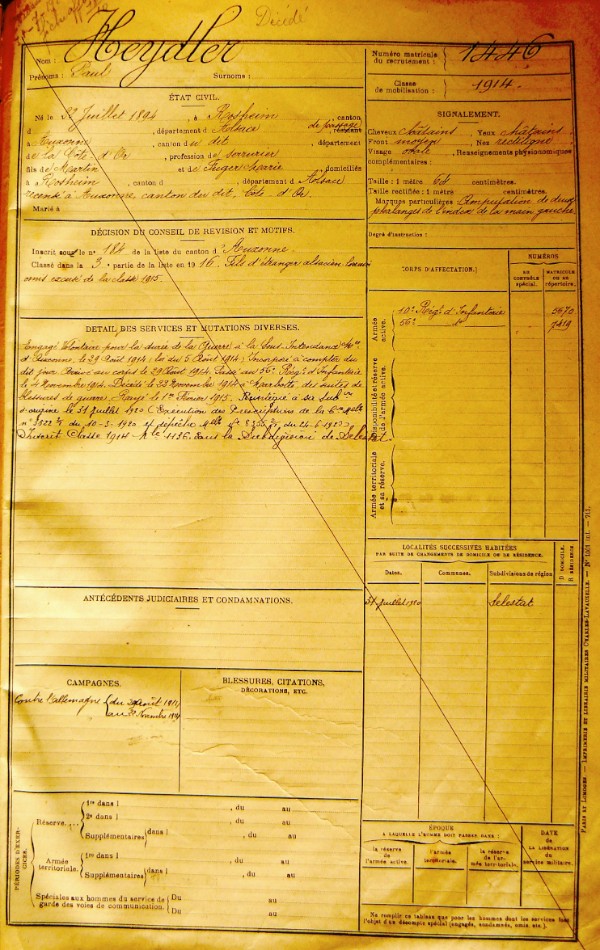 Décédé
Heydler
Nom :
Prénoms : Paul Surnoms :
Numéro matricule du recrutement : 1446
Classe de mobilisation : 1914.
ÉTAT CIVIL.
Né le 27 Juillet 1894, à Rosheim canton
d , département d'Alsace de passage
à Auxonne, canton du dit, département
de la Côte d'Or, profession de serrurier
fils de Martin et de Marie, domiciliés
à Rosheim, canton d , département d'Alsace
à Auxonne, canton du dit, Côte d'Or.
Marié à
SIGNALEMENT.
Cheveux châtains. Yeux châtains.
Front moyen Nez rectiligne
Visage ovale, Renseignements physionomiques
complémentaires :
Taille : 1 mètre 68 centimètres.
Taille rectifiée : 1 mètre centimètres.
Marques particulières : Amputation de deux
phalanges de l'index de la main gauche.
Degré d'instruction :
DÉCISION DU CONSEIL DE REVISION ET MOTIFS.
Inscrit sous le n° 184 de la liste du canton d'Auxonne.
Classé dans la 3e partie de la liste en 1916. Fils d'étranger alsacien lorrain
omis excusé de la classe 1915.
CORPS D'AFFECTATION.
NUMÉROS
AU CONTRÔLE spécial.
MATRICULE OU AU répertoire.
Armée active.
10e Régt d'Infanterie 5670
56e 7419
Disponibilité et réserve de l'armée active.
Armée territoriale et sa réserve.
DÉTAIL DES SERVICES ET MUTATIONS DIVERSES.
Engagé Volontaire pour la durée de la Guerre à la Sous-Intendance
d'Auxonne, le 29 Août 1914 (loi du 5 Août 1914) Incorporé à compter du
dit jour. Arrivé au corps le 29 Août 1914. Passé au 56e Régt d'Infanterie
le 4 Novembre 1914. Décédé le 22 Novembre 1914 à des suites de
blessures de guerre. Rayé le 1er Février 1915. à sa
d'origine le 31 Juillet 1920 (Exécution des Prescriptions de la
n° du 10-3-1920 et du 24-6-1920)
Inscrit Classe 1914 - 1136 dans la Subdivision de Sélestat
LOCALITÉS SUCCESSIVES HABITÉES
PAR SUITE DE CHANGEMENTS DE DOMICILE OU DE RÉSIDENCE.
Dates. Communes. Subdivisions de région
D DOMICILE.
R RÉSIDENCE.
31 Juillet 1920 Sélestat
ANTÉCÉDENTS JUDICIAIRES ET CONDAMNATIONS.
CAMPAGNES.
Contre l'Allemagne du 29 Août 1914
au 22 Novembre 1914
BLESSURES, CITATIONS,
DÉCORATIONS, ETC.
PÉRIODES D'EXERCICES.
Réserve.
1re dans l , du au
2e dans l , du au
Supplémentaires dans l , du au
Armée territoriale.
1re dans l , du au
Supplémentaires dans l , du au
Spéciales aux hommes du service de garde des voies de communication.
Du au
Du au
ÉPOQUE
A LAQUELLE L'HOMME DOIT PASSER DANS :
la réserve de l'armée active.
l'armée territoriale.
la réserve de l'armée territoriale.
DATE
DE LA LIBÉRATION
du service militaire.
Ne remplir ce tableau que pour les hommes dont les services font
l'objet d'un décompte spécial (engagés, condamnés, omis etc.).
PARIS ET LIMOGES. — IMPRIMERIE ET LIBRAIRIE MILITAIRES CHARLES-LAVAUZELLE.